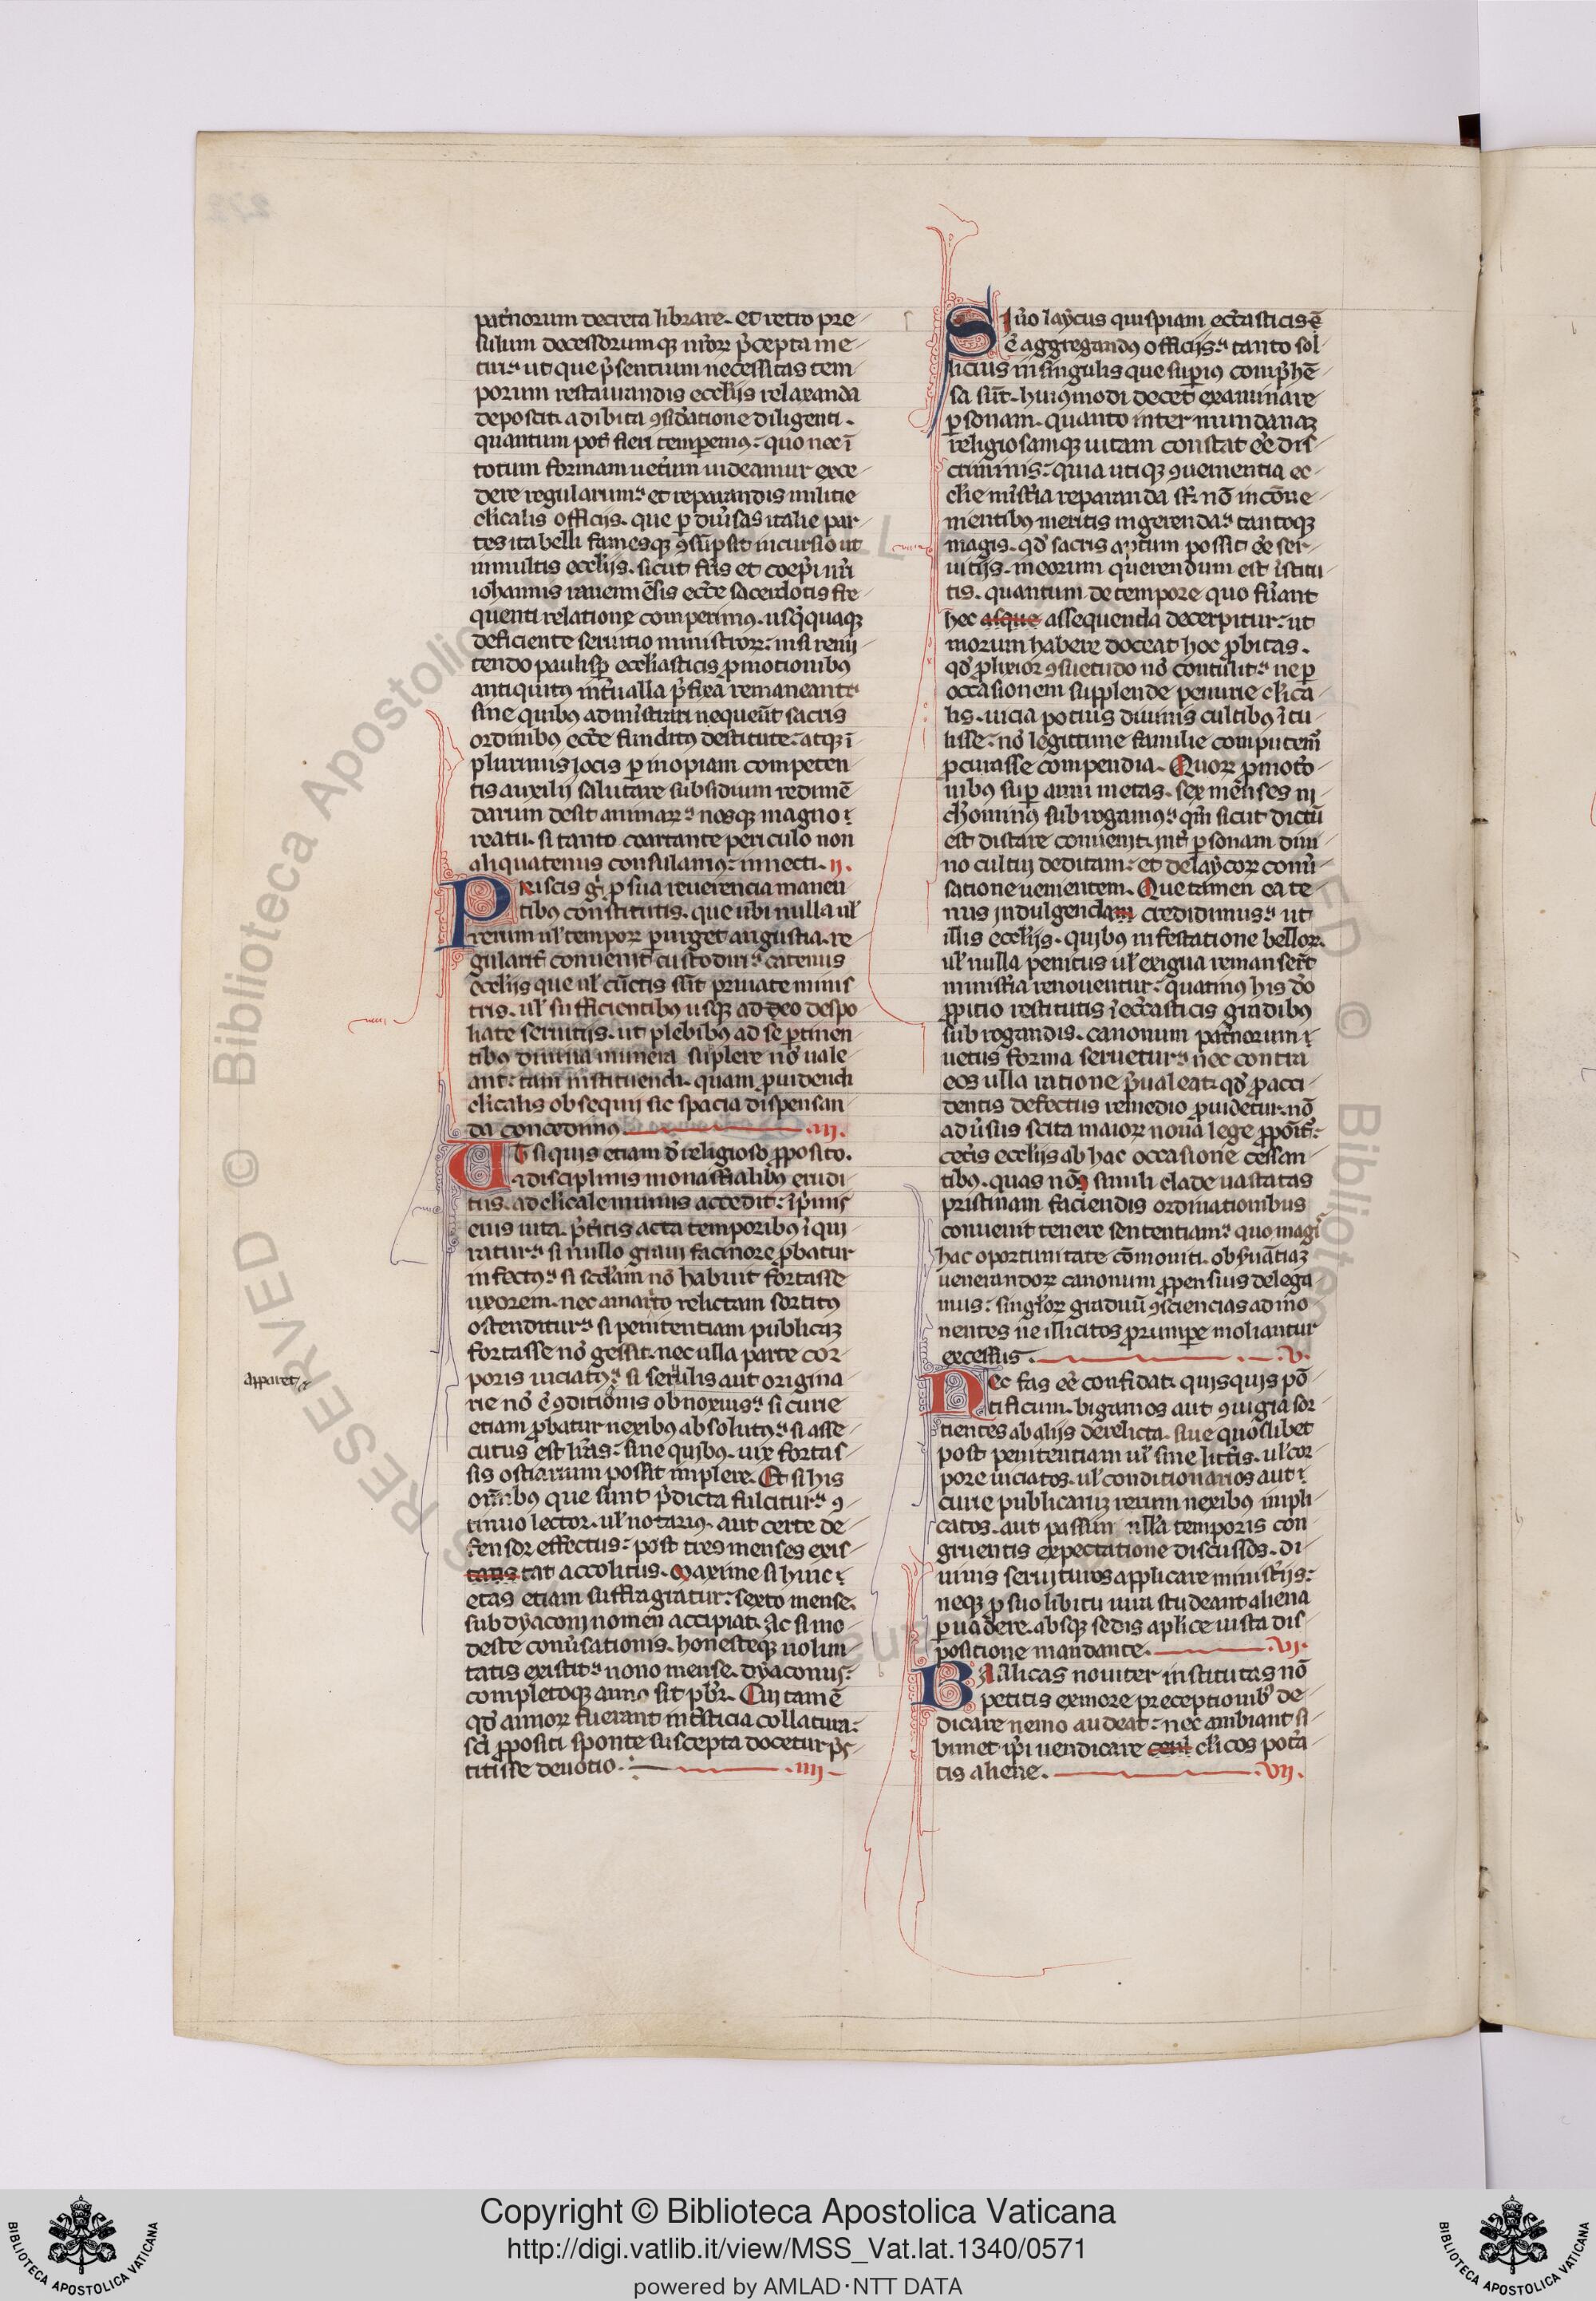 pat̓norum decreta librare. et retro pre
sulum decessorumqꝫ nr̄oꝝ p̄cepta me
tur᷑ ut que p̄sentium necessitas tem
porum restaurandis eccl̓ijs relaxanda
deposcit. adibita ꝯsid̓atione diligenti.
quantum pot̄ fieri temperemꝰ. quo nec ī
totum formam uet̓um uideamur exce
dere regularum. et reparandis militie
cl̓icalis officijs. que ꝑ diu̓sas italie par
tes ita belli famesqꝫ ꝯsūpsit incursio ut
inmultis eccl̓ijs. sicut fr̄is et coep̄i nr̄i
iohannis rauennēsis ecc̄e sacerdotis fre
quenti relatione comperimꝰ. usq̄quaqꝫ
deficiente seruitio ministroꝝ. nisi remi
tendo paulisꝑ eccl̓iasticis ꝓmotionibꝰ
antiquitꝰ int̓ualla p̄fixa remaneant
sine quibꝰ admīstrari nequeūt sacris
ordinibꝰ ecc̄e funditꝰ destitute. atqꝫ ī
plurimis locis ꝑ inopiam competen
tis auxilij salutare subsidium redimē
darum desit animaꝝ. nosqꝫ magno
reatu. si tanto coartante periculo non
aliquatenus consulamꝰ. innecti. ij.
Priscis gͥ ꝓ sua reuerencia manen
tibꝰ constitutis. que ubi nulla ul̓
rerum ul̓ tempoꝝ perurget angustia. re
gularit̓ conuenit custodiri. eatenus
eccl̓ijs que ul̓ cūctis sūt priuate minis
tris. ul̓ sufficientibꝰ usqꝫ adeo despo
liate seruitijs. ut plebibꝰ ad se ꝑtinen
tibꝰ diuina munera suplere nō uale
ant. tam instituendi. quam ꝓuidendi
cl̓icalis obsequij sic spacia dispensan
da concedimꝰ .iij.
Ut si quis etiam d̓ religioso ꝓposito.
⁊ disciplinis monast̓ialibꝰ erudi
tus. ad cl̓icale munus accedit. īp̄mis
eius uita p̄t̓itis acta temporibꝰ īqui
ratur. si nullo graui facinore ꝓbatur
infectꝰ. si sc̄dam nō habuit fortasse
uxorem. nec a marito relictam sortitꝰ
ostenditur. si penitentiam publicaꝫ
fortasse nō gessit. nec ulla parte cor
poris uiciatꝰ apparet. si seruilis aut origina
rie nō ē ꝯditionis obnoxius. si curie
etiam ꝓbatur nexibꝰ absolutꝰ. si asse
cutus est lr̄as. sine quibꝰ. uix fortas
sis ostiarium possit implere. Et si his
om̄ibꝰ que sunt p̄dicta fulcitur. ꝯ
tinuo lector. ul̓ notariꝰ. aut certe de
fensor effectus. post tres menses exis
tatis tat accolitus. maxime si huic
etas etiam suffragiatur. sexto mense.
subdyaconi nomen accipiat. Ac si mo
deste conu̓sationis. honesteqꝫ uolun
tatis existit. nono mense. dyaconus.
completoqꝫ anno sit pb̄r. Cui tamē
qd̓ annoꝝ fuerant int̓sticia collatura.
sc̄i ꝓpositi sponte suscepta docetur p̄s
titisse deuotio. .iiij.
Si u̓o laycus quispiam ecc̄asticis ē
ē aggregandꝰ officijs. tanto sol
licitus in singulis que suꝑius comp̄hē
sa sūt. huiꝰmodi decet examinare
ꝑsonam. quanto inter mundanaꝫ
religiosamqꝫ uitam constat eē dis
criminis. quia utiqꝫ ꝯuenientia ec
cl̓ie mīst̓ia reparanda sūt. nō incōue
nientibꝰ meritis ingerenda. tantoqꝫ
magis. qd̓ sacris aptum possit eē ser
uitijs. in eorum querendum est īstitu
tis. quantum de tempore quo fu̓ant
hec asque assequenda decerpitur. ut
morum habere doceat hoc ꝓbitas.
qd̓ ꝓlixior ꝯsuetudo nō contulit. ne ꝑ
occasionem supplende penurie cl̓ica
lis. uicia potius diuinis cultibꝰ ītu
lisse. nō legittime familie computem̓
ꝓcurasse compendia. Quoꝝ ꝓmoto
nibꝰ suꝑ anni metas. sex menses ni
chominꝰ subrogamꝰ. qm̄ sicut dictū
est distare conuenit. int̓ ꝑsonam diui
no cultui deditam. et de laycoꝝ conu̓
satione uenientem. Que tamen eate
nus indulgenda credidimus. ut
illis eccl̓ijs. quibꝰ infestatione belloꝝ.
ul̓ nulla penitus ul̓ exigua remanser̄t
minist̓ia renouentur. quatinꝰ his d̓o
ꝓpitio restitutis ī ecc̄asticis gradibꝰ
subrogandis. canonum pat̓norum
uetus forma seruetur. nec contra
eos ulla ratione p̄ualeat. qd̓ ꝓ acci
dentis defectus remedio ꝓuidetur. nō
adu̓sus scita maioꝝ noua lege ꝓponit̓.
cet̓is eccl̓ijs ab hac occasione cessan
tibꝰ. quas nō simili clade uastatas
pristinam faciendis ordinationibus
conuenit tenere sententiam. quo magͥ
hac oportunitate cōmoniti. obsuātiaꝫ
uenerandoꝝ canonum ꝓpensius delega
mus. singl̓oꝝ graduū ꝯsciencias admo
nentes ne illicitos ꝓrumpe moliantur
excessus. .v.
Nec fas eē confidat. quisquis pō
tificum. bigamos aut ꝯiugia sor
tientes ab alijs derelicta. siue quoslibet
post penitentiam ul̓ sine litt̓is. ul̓ cor
pore uiciatos. ul̓ conditionarios aut
curie publicaruꝫ rerum nexibus impli
catos. aut passim nulla temporis con
gruentis expectatione discussos. di
uinis seruituros applicare minist̓ijs.
neqꝫ ꝓ suo libitu iura studeant aliena
ꝑuadere. absqꝫ sedis aplice iusta dis
positione mandante. .vi.
Basilicas nouiter institutas nō
petitis exmore preceptionibꝰ de
dicare nemo audeat. nec ambiant si
bimet ip̄i uendicare ceul cl̓icos potā
tis aliene. .vij.
apparet
Copyright © Biblioteca Apostolica Vaticana
http://digi.vatlib.it/view/MSS_Vat.lat.1340/0571
powered by AMLAD·NTT DATA
BIBLIOTECA APOSTOLICA VATICANA
BIBLIOTECA APOSTOLICA VATICANA